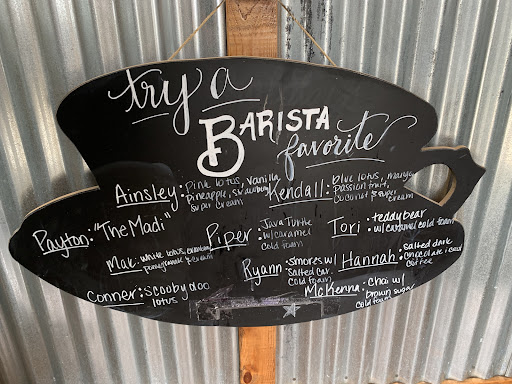 try a
BARISTA
favorite
Ainsley: Pink lotus, vanilla,
pineapple, strawberry
super cream
Kendall: blue lotus, mango
passion fruit,
coconut & super
cream
Payton: "The Madi"
Piper: Java Turtle
w/caramel
cold foam
Tori: teddy bear
w/caramel cold foam
Mak: white lotus,
pomegranate & cream
Ryann: smores w/
salted car.
cold foam
Hannah: salted dark
chocolate iced
coffee
Conner: Scooby doo
lotus
McKenna: chai w/
brown sugar
cold foam